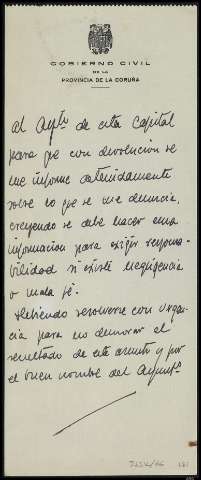 GOBIERNO CIVIL
DE LA
PROVINCIA DE LA CORUÑA
Al Aytº de esta Capital
para qe con devolucion se
me informe detenidamente
sobre lo qe se me denuncia,
creyendo se debe hacer una
informacion para exigir responsa-
bilidad si existe negligencia
o mala fé.
Debiendo resolverse con urgen-
cia para no demorar el
resultado de este asunto y por
el buen nombre del Ayuntº.